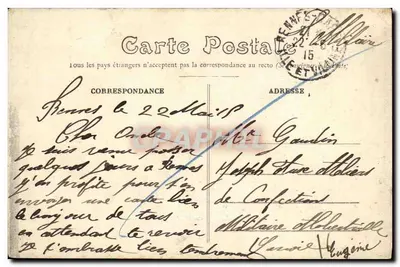 Carte Postale
Tous les pays étrangers n'acceptent pas la correspondance au recto
CORRESPONDANCE
ADRESSE
RENNES
22
15
ILLE-ET-VILAINE
Rennes le 22 Mai 15
Cher Oncle
Je suis venu passer
quelques jours à Rennes
j'en profite pour t'en
envoyer une carte bien
le bonjour de tous
en attendant te revoir
je t'embrasse bien tendrement
Eugène
Mr Gaudin
Joseph Aux Ateliers
de Confections
Militaire
CARTE